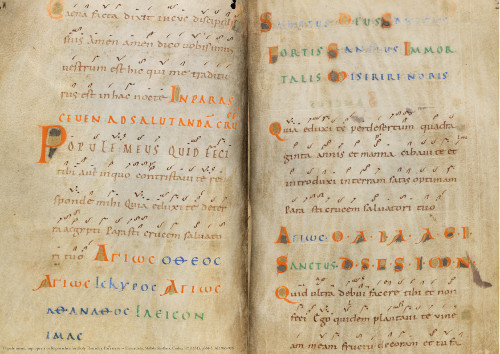 Cena facta dixit iħc discipulis
suis amen amen dico vobis unus
vestrum est hic qui me tradituˈ
rus est in hac nocte IN PARAS
CEVEN AD SALUTANDĀ CRU
POPULE MEUS QUID FECI
tibi aut in quo contristavi te re
sponde mihi Quia eduxi te de ter
ra aegypti Parasti crucem salvatori
tuo ΑΓΙΩϹ Ο ΘΕΟϹ
ΑΓΙΩϹ ΙϹΚΥΡΟϹ ΑΓΙΩϹ
ΑΘΑΝΑΘΟϹ
ΙΜΑϹ
SANCTUS DEUS SANCTUS
FORTIS SANCTUS IMMOR
TALIS MISERERE NOBIS
Quia eduxi te per desertum quadra
ginta annis et manna cibavi te et
introduxi in terram satis optimam
Parasti crucem salvatori tuo
ΑΓΙΩϹ
SANCTUS
Quid ultra debui facere tibi et non
feci Ego quidem plantavi te vine
am meam fructu decoram et tu fa